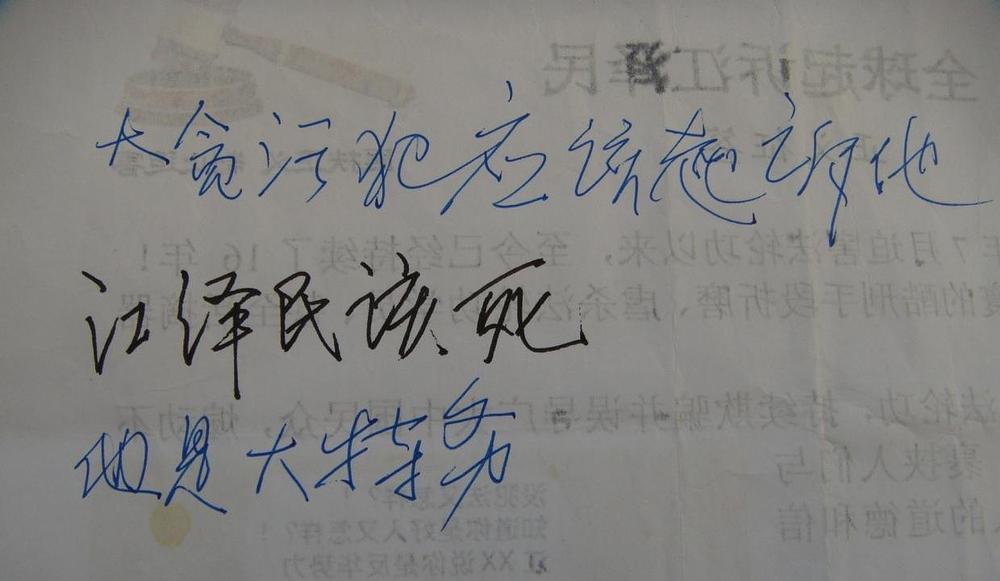 全球起诉江泽民
大贪污犯应该起诉他
年7月迫害法轮功以来，至今已经持续了16年！
的酷刑手段折磨、虐杀法
江泽民该死
法轮功，持续欺骗并误导广大中国民众，煽动不
他是大特务
裹挟人们与
的道德和信
没犯法又怎样？！
知道你是好人又怎样？！
XX说你是反华势力